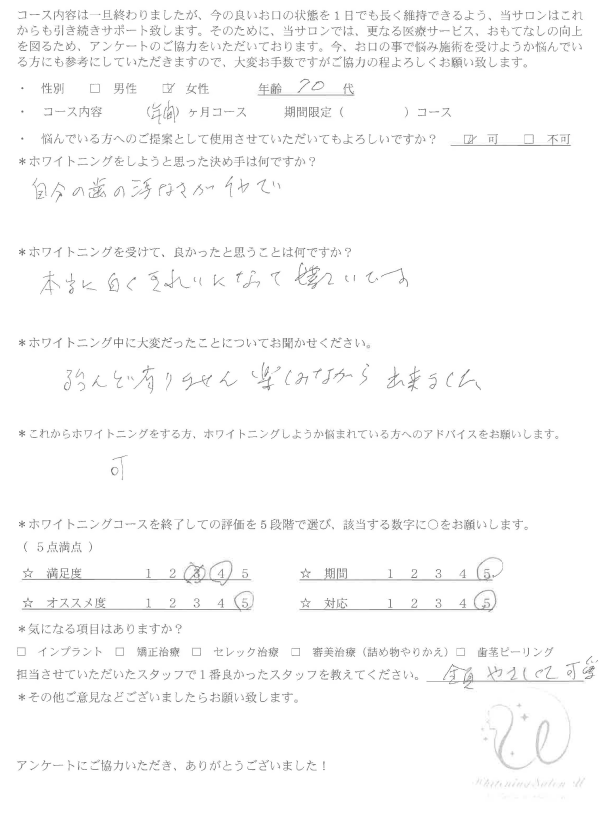 コース内容は一旦終わりましたが、今の良いお口の状態を1日でも長く維持できるよう、当サロンはこれ
からも引き続きサポート致します。そのために、当サロンでは、更なる医療サービス、おもてなしの向上
を図るため、アンケートのご協力をいただいております。今、お口の事で悩み施術を受けようか悩んでい
る方にも参考にしていただきますので、大変お手数ですがご協力の程よろしくお願い致します。
・ 性別 □ 男性 ☑ 女性 年齢 70 代
・ コース内容 (年間)ヶ月コース 期間限定( )コース
・ 悩んでいる方へのご提案として使用させていただいてもよろしいですか? ☑ 可 □ 不可
*ホワイトニングをしようと思った決め手は何ですか?
自分の歯の
*ホワイトニングを受けて、良かったと思うことは何ですか?
本当に白くきれいになって嬉しいです
*ホワイトニング中に大変だったことについてお聞かせください。
殆んど有りません 楽しみながら 出来ました
*これからホワイトニングをする方、ホワイトニングしようか悩まれている方へのアドバイスをお願いします。
可
*ホワイトニングコースを終了しての評価を5段階で選び、該当する数字に○をお願いします。
( 5点満点 )
☆ 満足度 1 2 3 4 5 ☆ 期間 1 2 3 4 5
☆ オススメ度 1 2 3 4 5 ☆ 対応 1 2 3 4 5
*気になる項目はありますか?
□ インプラント □ 矯正治療 □ セレック治療 □ 審美治療(詰め物やりかえ) □ 歯茎ピーリング
担当させていただいたスタッフで1番良かったスタッフを教えてください。 全員 やさしくて
*その他ご意見などございましたらお願い致します。
アンケートにご協力いただき、ありがとうございました!
Whitening Salon U